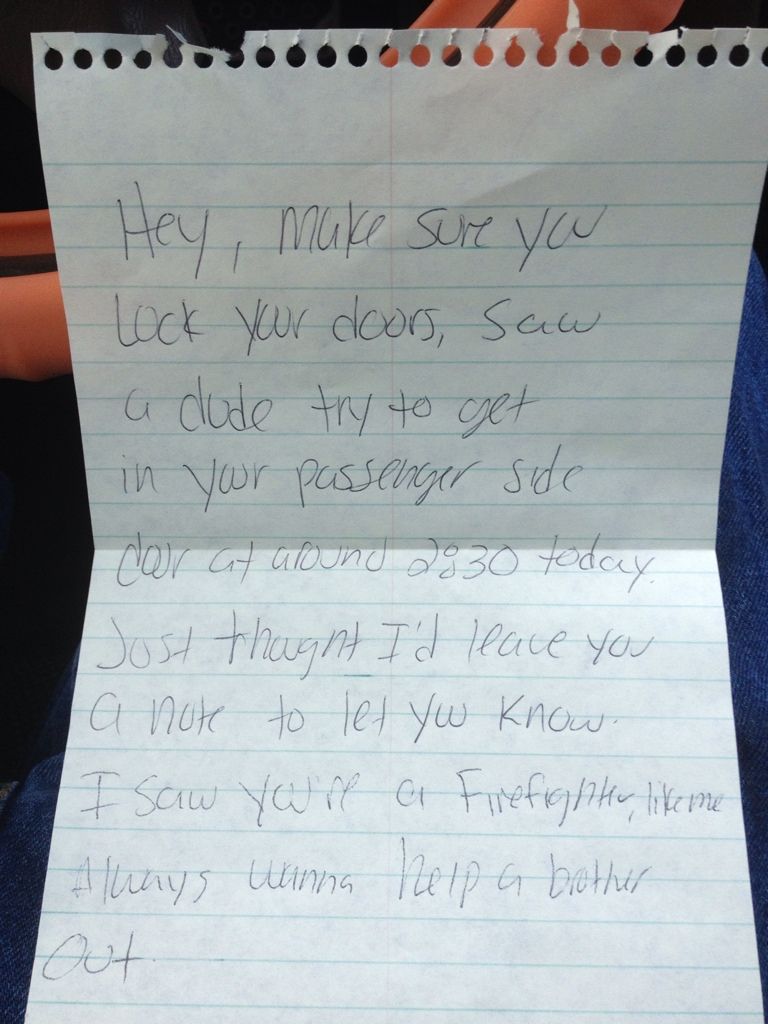 Hey, make sure you
Lock your doors, saw
a dude try to get
in your passenger side
door at around 2:30 today.
Just thought I'd leave you
a note to let you know.
I saw you're a Firefighter, like me
Always wanna help a brother
Out.